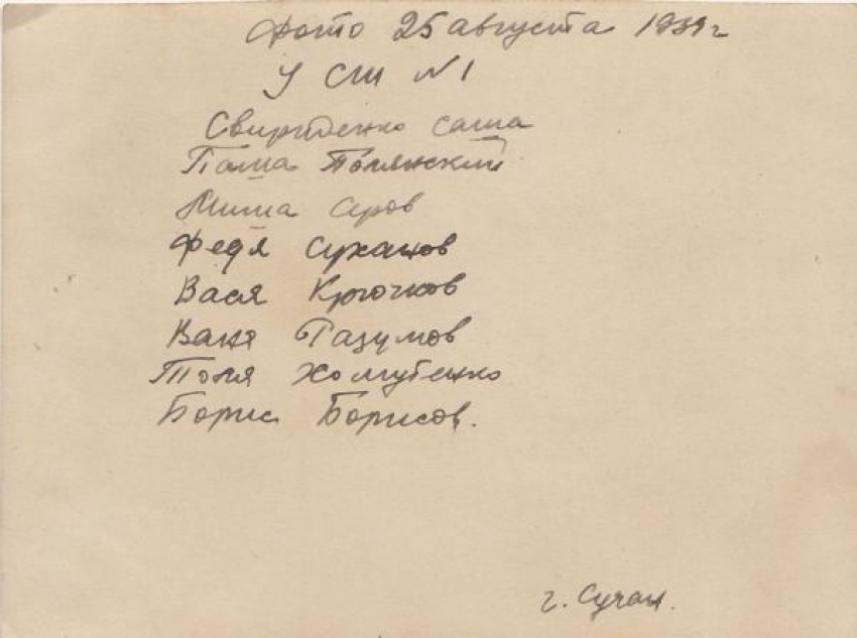 Фото 25 августа 1939 г
У СШ №1
Свириденко Саша
Паша Полянский
Миша Серов
Федя Суханов
Вася Крючков
Ваня Разумов
Толя Хомутенко
Борис Борисов.
г. Сучан.